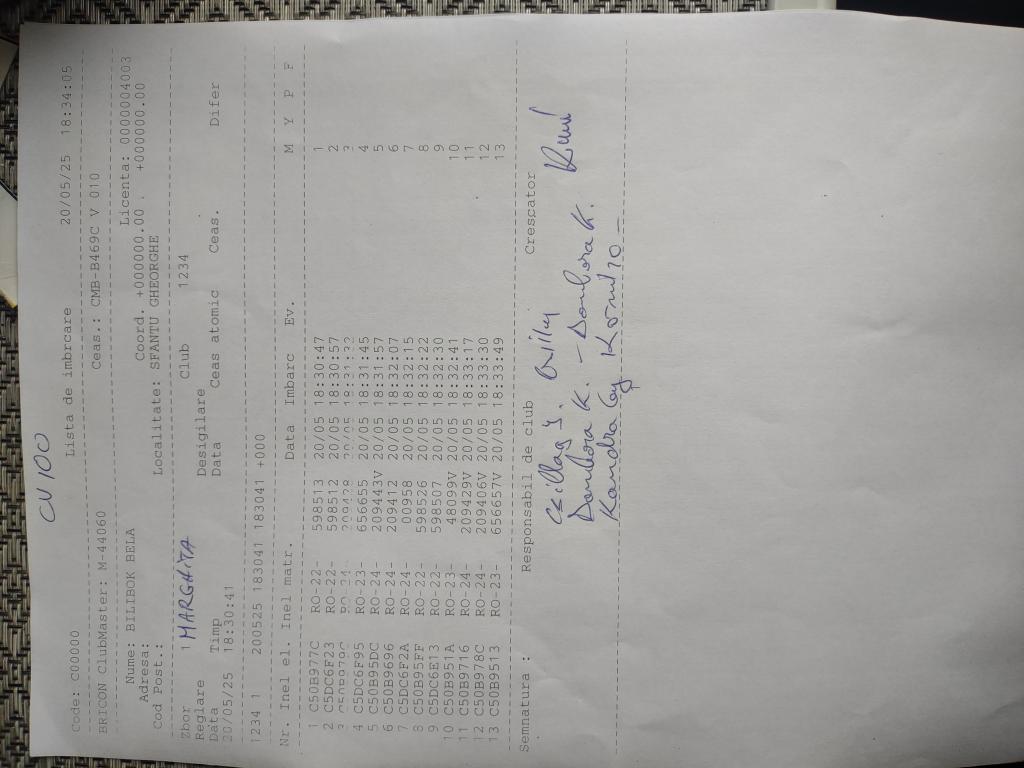 CU 100
Code: C00000 Lista de imbrcare 20/05/25 18:34:05
BRICON ClubMaster: M-44060 Ceas.: CMB-B469C V 010
Nume: BILIBOK BELA Licenta: 0000004003
Adresa: Coord. +000000.00 , +000000.00
Cod Post.: Localitate: SFANTU GHEORGHE
Zbor 1 MARGHITA Club 1234
Reglare Desigilare
Data Timp Data Ceas atomic Ceas. Difer
20/05/25 18:30:41
1234 1 200525 183041 183041 +000
Nr. Inel el. Inel matr. Data Imbarc Ev. M Y P F
1 C50B977C RO-22- 598513 20/05 18:30:47 1
2 C5DC6F23 RO-22- 598512 20/05 18:30:57 2
3 20/05 3
4 C5DC6F95 RO-23- 656655 20/05 18:31:45 4
5 C50B95DC RO-24- 209443V 20/05 18:31:57 5
6 C50B9696 RO-24- 209412 20/05 18:32:07 6
7 C5DC6F2A RO-24- 00958 20/05 18:32:15 7
8 C50B95FF RO-22- 598526 20/05 18:32:22 8
9 C5DC6E13 RO-22- 598507 20/05 18:32:30 9
10 C50B951A RO-23- 48099V 20/05 18:32:41 10
11 C50B9716 RO-24- 209429V 20/05 18:33:17 11
12 C50B978C RO-24- 209406V 20/05 18:33:30 12
13 C50B9513 RO-23- 656657V 20/05 18:33:49 13
Semnatura : Responsabil de club Crescator
Csillag
Dombora K. - Dombora K.
Kandra